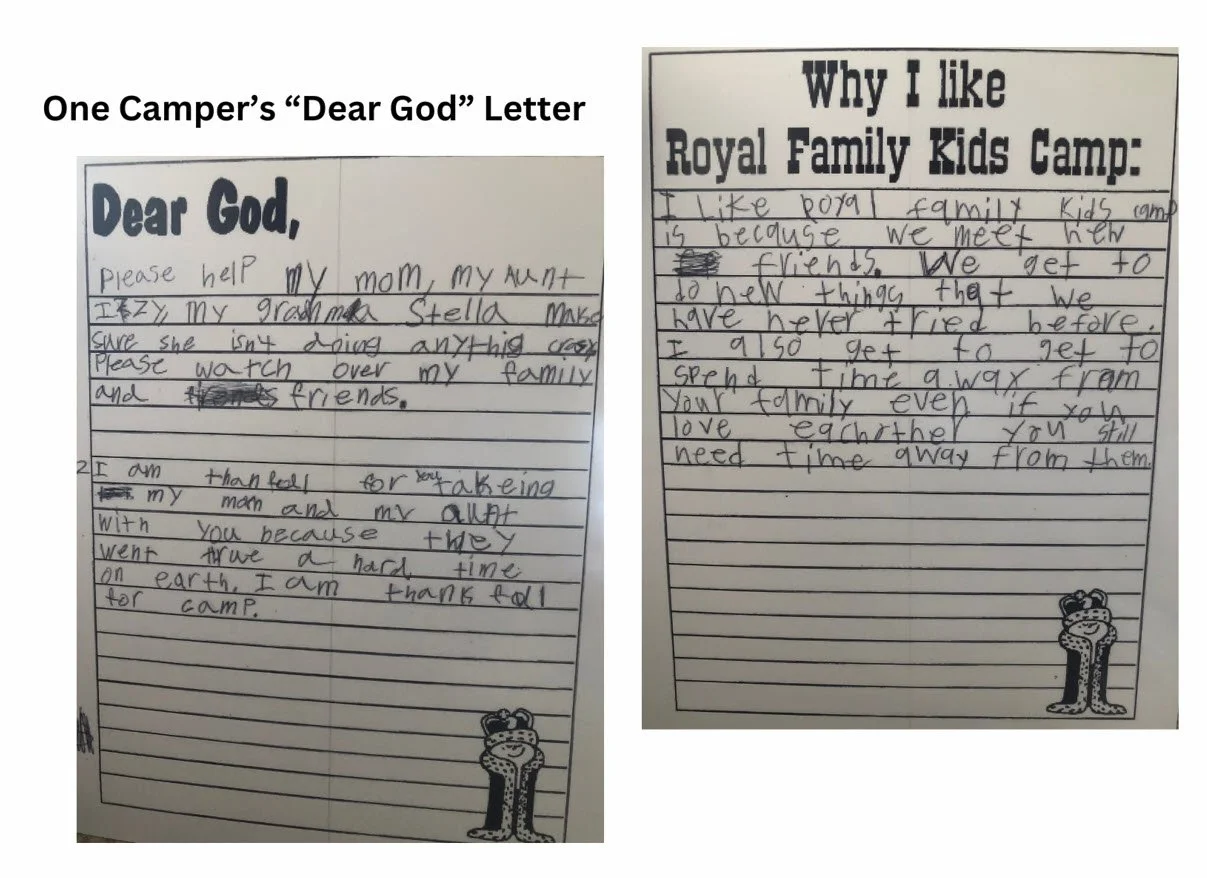 One Camper's “Dear God” Letter
Dear God,
Please help my mom, my Aunt
Izzy, my gradhma Stella Make
sure she isn't doing anythig crasy
Please watch over my family
and friends.
2 I am thanfoll for you takeing
my mom and my aunt
with you because they
went thrue a hard time
on earth. I am thank foll
for camp.
Why I like
Royal Family Kids Camp:
I Like Royal family Kids camp
is because we meet new
friends. We get to
do new things that we
have never tried before.
I also get to get to
spend time away from
your family even if you
love eachother you still
need time away from them.